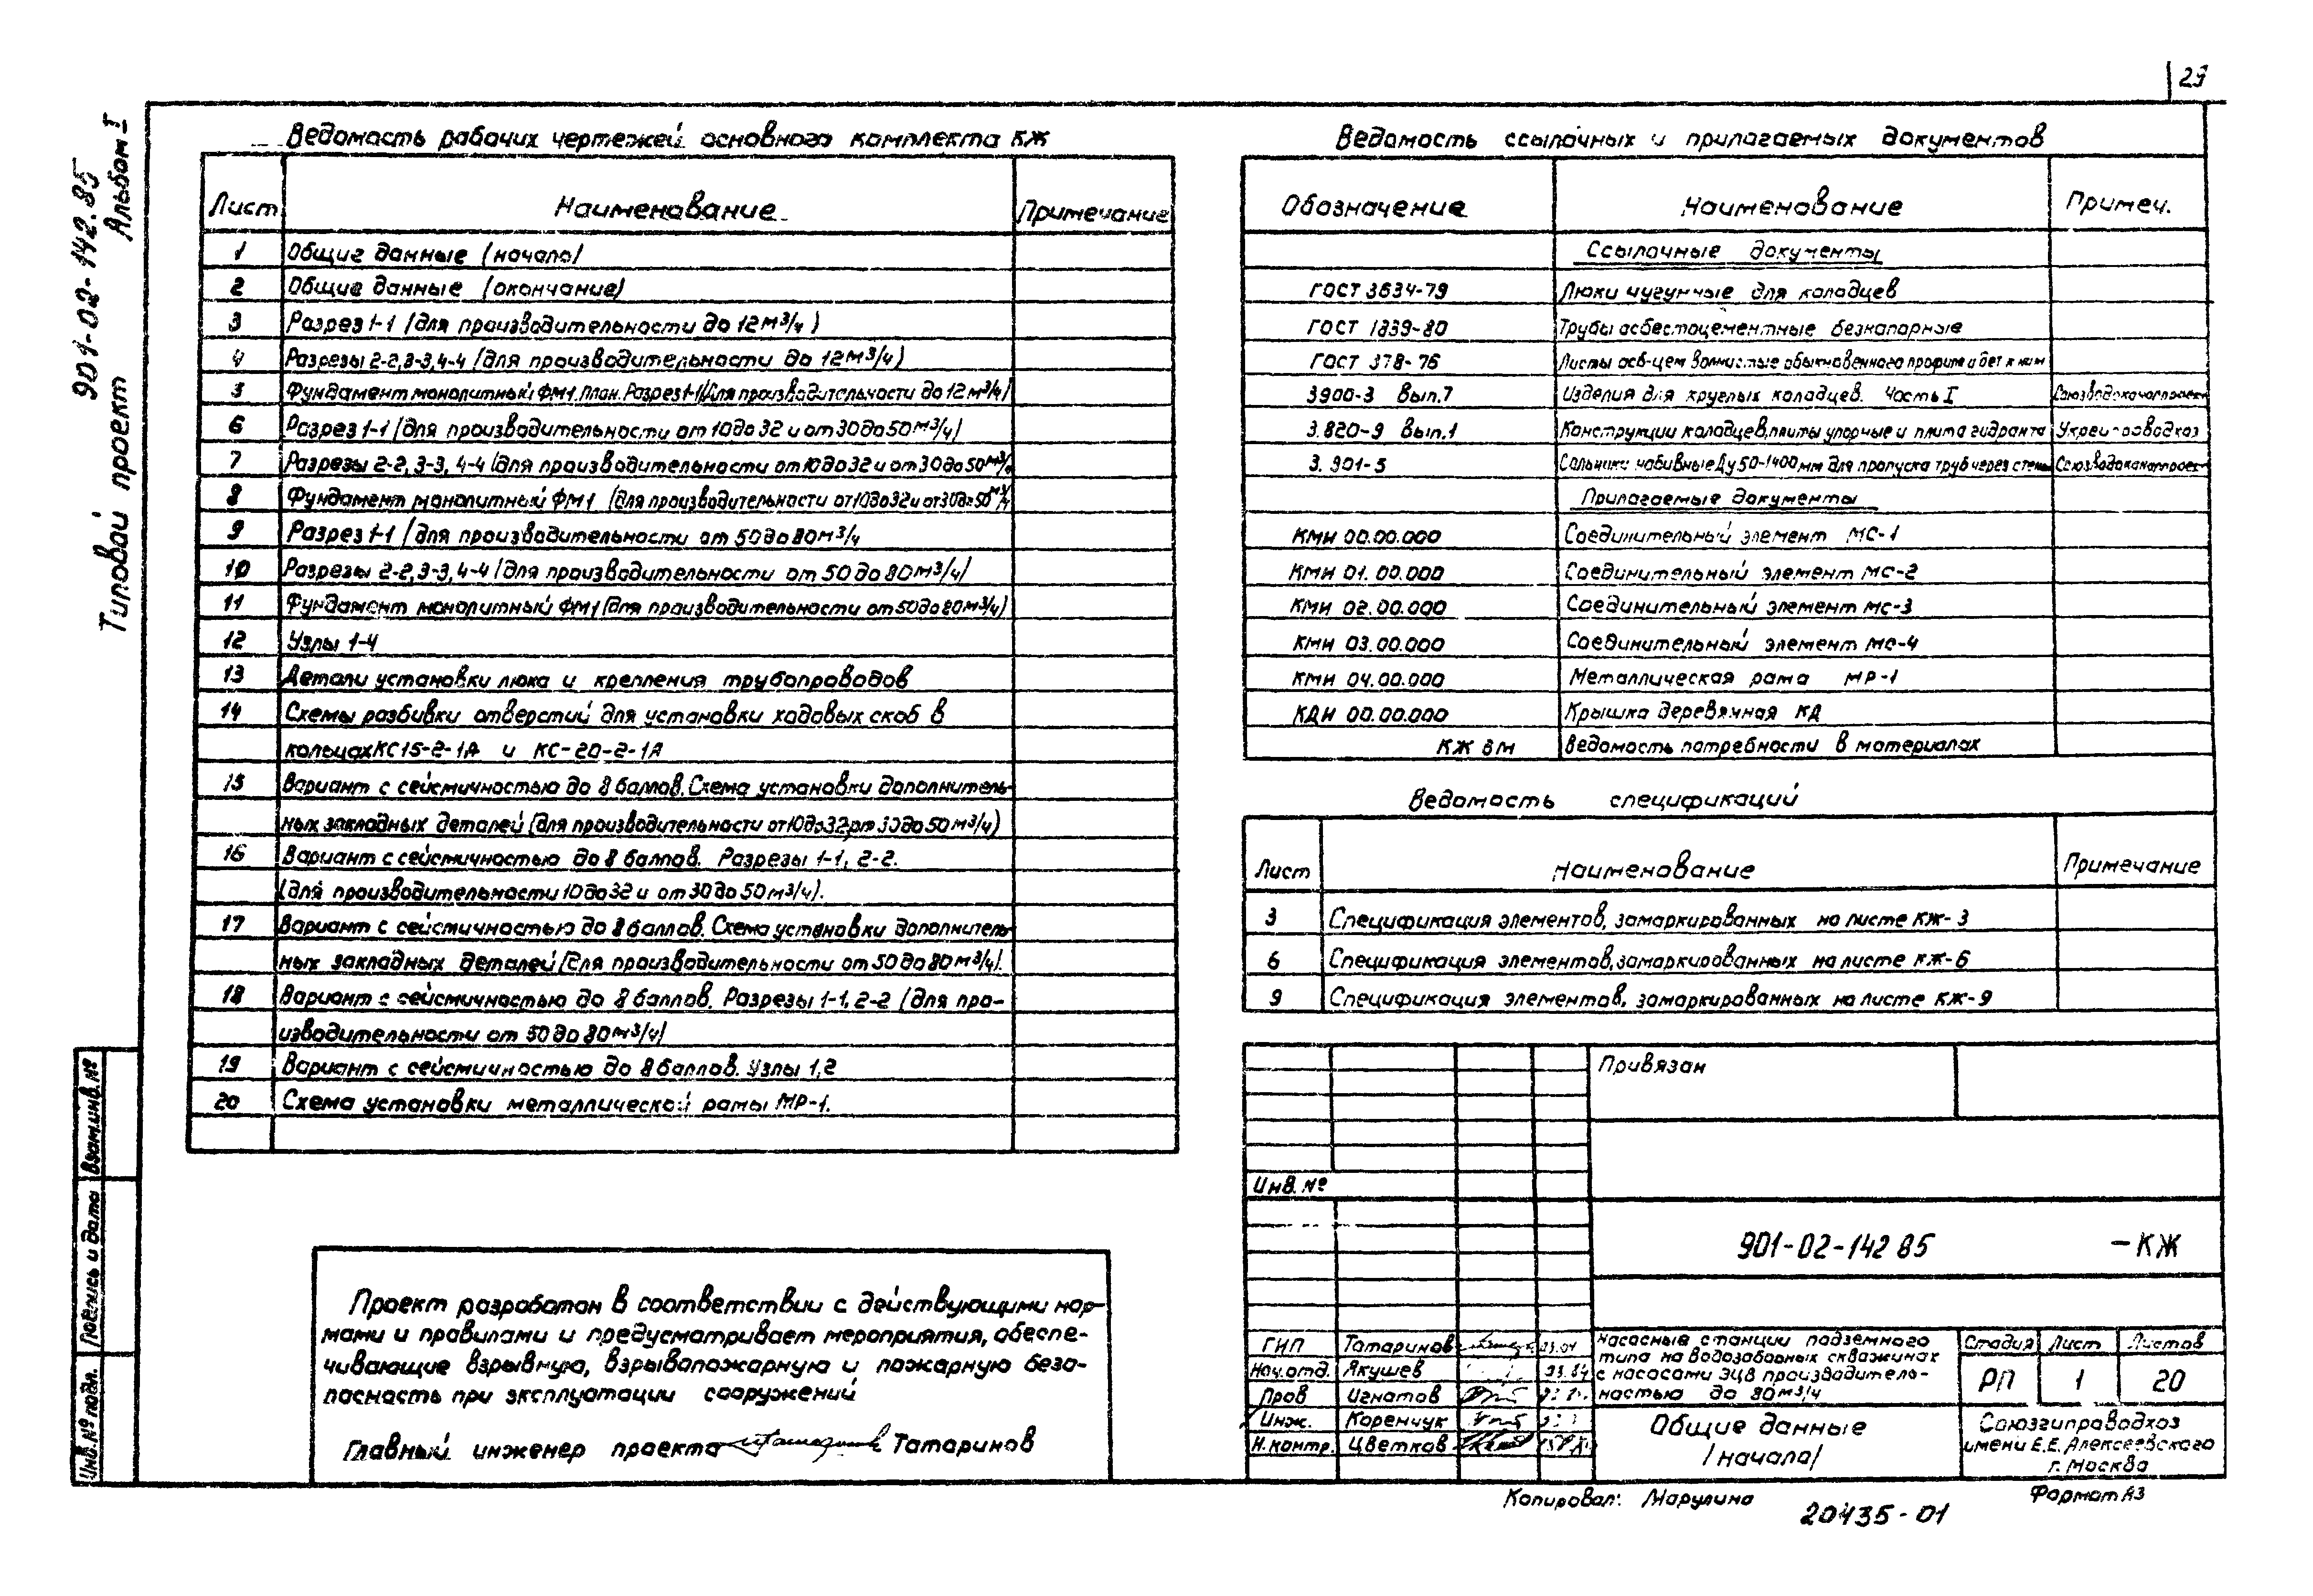 29
Типовой проект 901-02-142.85
Альбом I
Ведомость рабочих чертежей основного комплекта КЖ
Лист Наименование Примечание
1 Общие данные /начало/
2 Общие данные (окончание)
3 Разрез 1-1 /для производительности до 12м³/ч)
4 Разрезы 2-2,3-3,4-4 /для производительности до 12м³/ч)
5 Фундамент монолитный ФМ1. План. Разрез 1-1/для производительности до 12м³/ч/
6 Разрез 1-1 /для производительности от 10 до 32 и от 30 до 50м³/ч)
7 Разрезы 2-2, 3-3, 4-4 /для производительности от 10 до 32 и от 30 до 50м³/ч
8 Фундамент монолитный ФМ1 (для производительности от 10 до 32 и от 30 до 50м³/ч
9 Разрез 1-1 /для производительности от 50 до 80м³/ч
10 Разрезы 2-2,3-3,4-4 /для производительности от 50 до 80м³/ч/
11 Фундамент монолитный ФМ1 (для производительности от 50 до 80м³/ч)
12 Узлы 1-4
13 Детали установки люка и крепления трубопроводов
14 Схемы разбивки отверстий для установки ходовых скоб в
кольцах КС15-2-1А и КС-20-2-1А
15 Вариант с сейсмичностью до 8 баллов. Схема установки дополнитель-
ных закладных деталей (для производительности от 10 до 32, от 30 до 50м³/ч)
16 Вариант с сейсмичностью до 8 баллов. Разрезы 1-1, 2-2.
(для производительности 10 до 32 и от 30 до 50м³/ч).
17 Вариант с сейсмичностью до 8 баллов. Схема установки дополнитель-
ных закладных деталей /для производительности от 50 до 80м³/ч).
18 Вариант с сейсмичностью до 8 баллов. Разрезы 1-1, 2-2 /для про-
изводительности от 50 до 80м³/ч/
19 Вариант с сейсмичностью до 8 баллов. Узлы 1,2
20 Схема установки металлической рамы МР-1.
Проект разработан в соответствии с действующими нор-
мами и правилами и предусматривает мероприятия, обеспе-
чивающие взрывную, взрывопожарную и пожарную безо-
пасность при эксплуатации сооружений
Главный инженер проекта Татаринов
Взам.инв.№
Подпись и дата
Инв.№ подл.
Ведомость ссылочных и прилагаемых документов
Обозначение Наименование Примеч.
Ссылочные документы
ГОСТ 3634-79 Люки чугунные для колодцев
ГОСТ 1839-80 Трубы асбестоцементные безнапорные
ГОСТ 378-76 Листы асб-цем волнистые обыкновенного профиля и дет к ним
3900-3 Вып.7 Изделия для круглых колодцев. Часть I Союзводоканалпроект
3.820-9 Вып.1 Конструкции колодцев, плиты упорные и плита гидранта Укргипроводхоз
3.901-5 Сальники набивные Ду 50-1400мм для пропуска труб через стены Союзводоканалпроект
Прилагаемые документы
КМИ 00.00.000 Соединительный элемент МС-1
КМИ 01.00.000 Соединительный элемент МС-2
КМИ 02.00.000 Соединительный элемент МС-3
КМИ 03.00.000 Соединительный элемент МС-4
КМИ 04.00.000 Металлическая рама МР-1
КДИ 00.00.000 Крышка деревянная КД
КЖ ВМ Ведомость потребности в материалах
Ведомость спецификаций
Лист Наименование Примечание
3 Спецификация элементов, замаркированных на листе КЖ-3
6 Спецификация элементов, замаркированных на листе КЖ-6
9 Спецификация элементов, замаркированных на листе КЖ-9
Привязан
Инв.№
901-02-142 85 -КЖ
ГИП Татаринов
Нач.отд. Якушев
Пров Игнатов
Инж. Коренчук
Н.контр. Цветков
Насосные станции подземного
типа на водозаборных скважинах
с насосами ЭЦВ производитель-
ностью до 80м³/ч
Стадия Лист Листов
РП 1 20
Общие данные
/начало/
Союзгипроводхоз
имени Е.Е. Алексеевского
г. Москва
Копировал: Марулина
20435-01
Формат А3